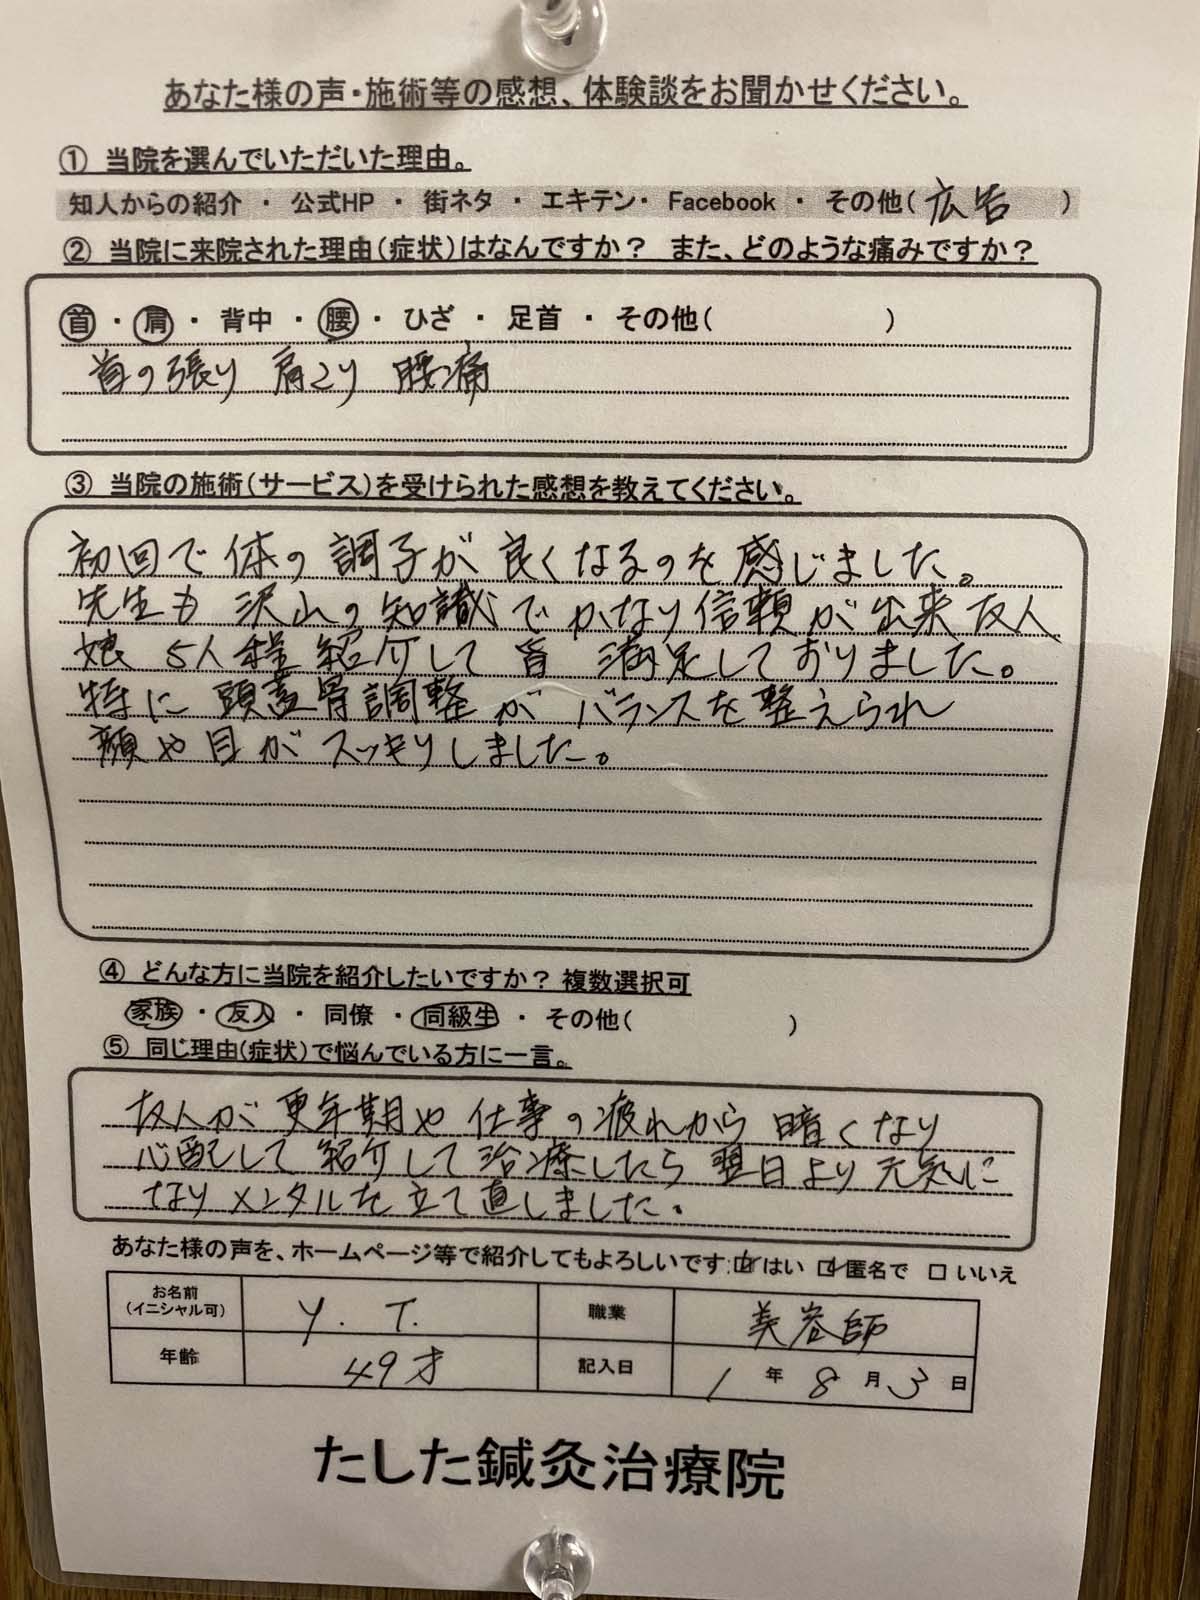 あなた様の声・施術等の感想、体験談をお聞かせください。
① 当院を選んでいただいた理由。
知人からの紹介 ・ 公式HP ・ 街ネタ ・ エキテン・ Facebook ・ その他( 広告 )
② 当院に来院された理由(症状)はなんですか？ また、どのような痛みですか？
首 ・ 肩 ・ 背中 ・ 腰 ・ ひざ ・ 足首 ・ その他( )
首の張り 肩こり 腰痛
③ 当院の施術(サービス)を受けられた感想を教えてください。
初回で体の調子が良くなるのを感じました。
先生も沢山の知識でかなり信頼が出来友人
娘 5人程紹介して皆 満足しておりました。
特に頭蓋骨調整がバランスを整えられ
顔や目がスッキリしました。
④ どんな方に当院を紹介したいですか？ 複数選択可
家族 ・ 友人 ・ 同僚 ・ 同級生 ・ その他( )
⑤ 同じ理由(症状)で悩んでいる方に一言。
友人が更年期や仕事の疲れから 暗くなり
心配して紹介して治療したら翌日より元気に
なりメンタルを立て直しました。
あなた様の声を、ホームページ等で紹介してもよろしいです: ☑ はい ☑ 匿名で □ いいえ
お名前
(イニシャル可) Y. T. 職業 美容師
年齢 49才 記入日 1 年 8 月 3 日
たした鍼灸治療院